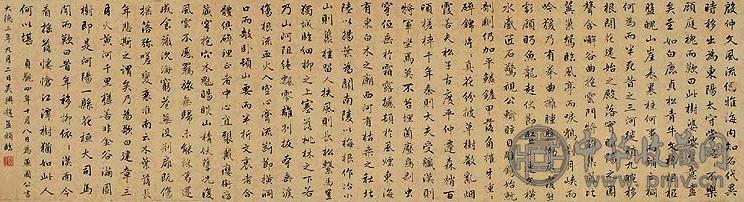 殷仲文風流儒雅海內知名代異
時移出為東陽太守常忽忽不樂
顧庭槐而歎曰此樹婆娑生意盡
矣至如白鹿貞松青牛文梓根
盤魄山崖表裏桂何事而銷亡桐
何為而半死昔之三河徙植九畹移
根開花建始之殿落實睢陽之園
聲含嶰谷曲抱雲門將雛集鳳比
翼巢鴛臨風亭而唳鶴對月峽而
吟猨乃有拳曲擁腫盤坳反覆熊
彪顧眄魚龍起伏節豎山連文橫
水蹙匠石驚視公輸眩目雕鐫始就
剞劂仍加平鱗鏟甲落角摧牙重重
碎錦片片真花紛披草樹散亂煙
霞若夫松子古度平仲君遷森梢百
頃槎枿千年秦則大夫受職漢則
將軍坐焉莫不苔埋菌壓鳥剝蟲
穿低垂於霜露撼頓於風煙東海
有東白木之廟西河有枯桑之社北
陸以楊葉為關南陵以梅根作冶小
山則叢桂留人扶風則長松繫馬豈
獨城臨細柳之上塞落桃林之下若
乃山河阻絕飄零離別拔本垂淚
傷根流血火入空心膏流斷節橫洞
口而欹臥頓山要而半折文衺者合
體俱碎理正者中心直裂戴癭銜瘤
藏穿抱穴木魅賜睒山精妖孽況復
風雲不感羈旅無歸未能採葛還
成食薇沉淪窮巷蕪沒荊扉既傷
搖落彌嗟變衰淮南云木葉落長
年悲斯之謂矣乃為歌曰建章三
月火黃河千里槎若非金谷滿園
樹即是河陽一縣花桓大司馬
聞而歎曰昔年移柳依依漢南今
看搖落悽愴江潭樹猶如此人
何以堪 貞觀四年十月八日為燕國公書
大德三年九月二日吳興趙孟頫臨
中华收藏网
www.pmv.cn